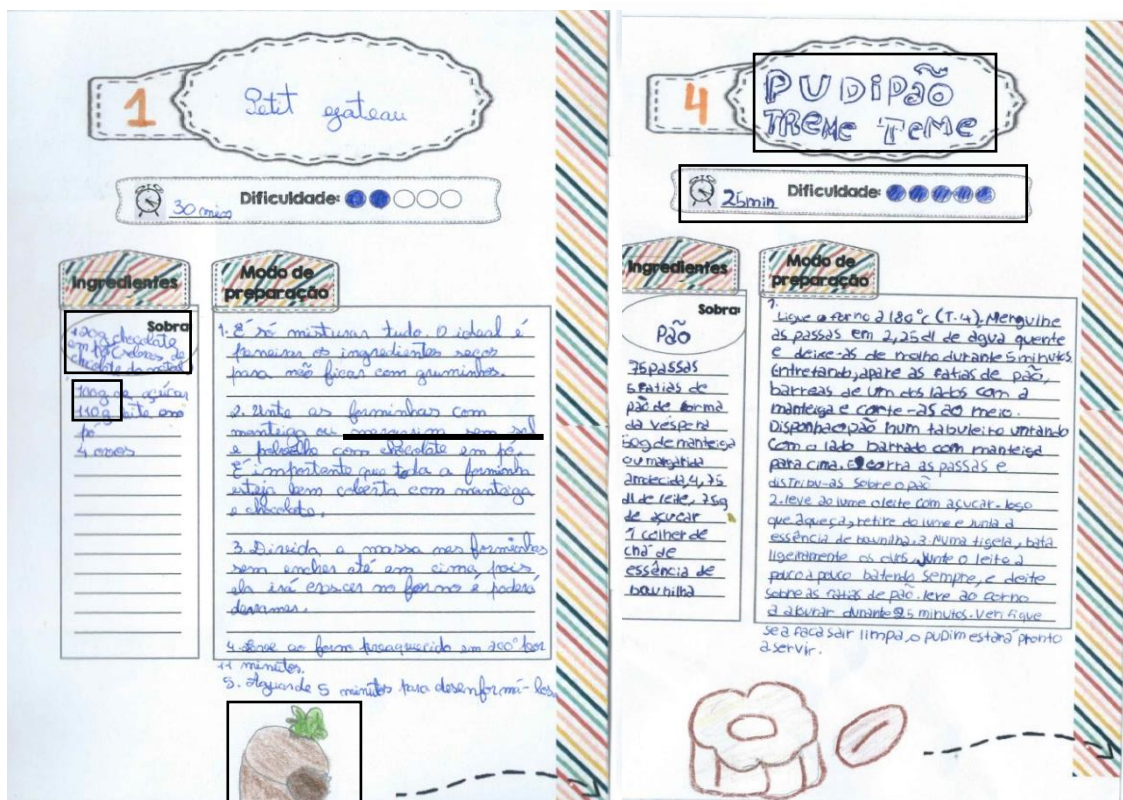 1
Petit gateau
30 mins
Dificuldade:
Ingredientes
Sobra:
120g chocolate
em pó (sobras de
chocolate do natal)
100g de açúcar
110g leite em
pó
4 ovos
Modo de
preparação
1. É só misturar tudo. O ideal é
peneirar os ingredientes secos
para não ficar com gruminhos.
2. Unte as forminhas com
manteiga ou sem sal
e polvilhe com chocolate em pó.
É importante que toda a forminha
esteja bem coberta com manteiga
e chocolate.
3. Divida a massa nas forminhas
sem encher até em cima, pois
ela irá crescer no forno e poderá
derramar.
4. Leve ao forno preaquecido em 200° por
11 minutos.
5. Aguarde 5 minutos para desenformá-los.
4
PUDIPÃO
TREME TEME
25min
Dificuldade:
Ingredientes
Sobra:
Pão
75 passas
5 fatias de
pão de forma
da véspera
50g de manteiga
ou margarida
amolecida, 4,75
dl de leite, 75g
de açucar
1 colher de
chá de
essência de
baunilha
Modo de
preparação
1.
Ligue o forno a 180°c (T.4). Merguihe
as passas em 2,25dl de água quente
e deixe-as de molho durante 5 minutos.
Entretando, apare as fatias de pão,
barreas de um dos lados com a
manteiga e corte-as ao meio.
Disponha o pão num tabuleiro untando
com o lado barrado com manteiga
para cima. Escorra as passas e
distribu-as sobre o pão
2. leve ao lume o leite com açucar. logo
que aqueça, retire do lume e junta a
essência de baunilha. 3. Numa tigela, bata
ligeiramente os ovos. Junte o leite a
pouco a pouco batendo sempre, e deite
sobre as fatias de pão. leve ao forno
a alourar durante 25 minutos. Verifique
se a faca sair limpa, o pudim estará pronto
a servir.